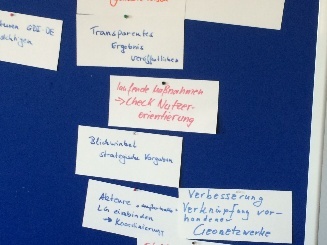 GDI-DE
Transparentes
Ergebnis
veröffentlichen
laufende Maßnahmen
→ Check Nutzer-
orientierung
Blickwinkel
strategische Vorgaben
Akteure
LG einbinden
→ Koordinierung
Verbesserung
Verknüpfung vor-
handener
Geonetzwerke